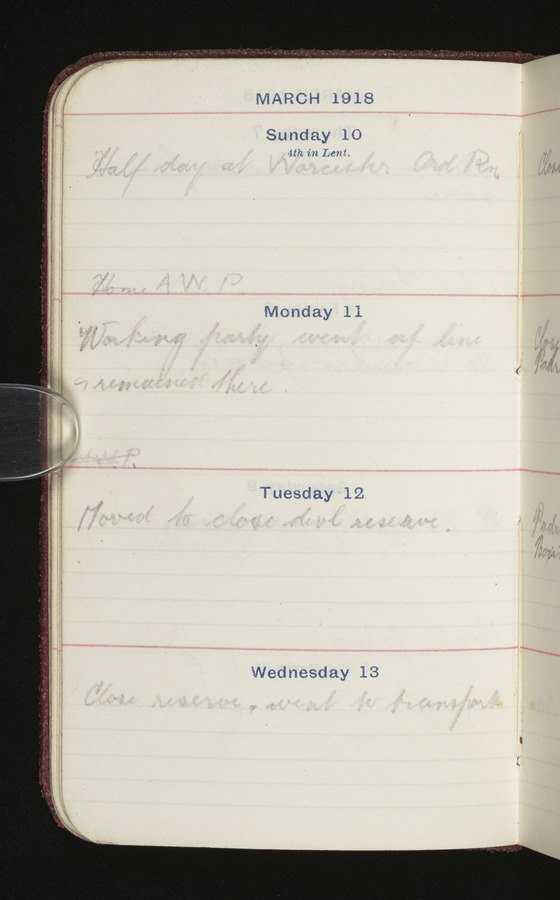 MARCH 1918
Sunday 10
4th in Lent.
Half day at Worcester Ord Rm
Home A.W.P.
Monday 11
Working party went up line
& remained there.
A.W.P.
Tuesday 12
Moved to close divl reserve.
Wednesday 13
Close reserve, went to transport